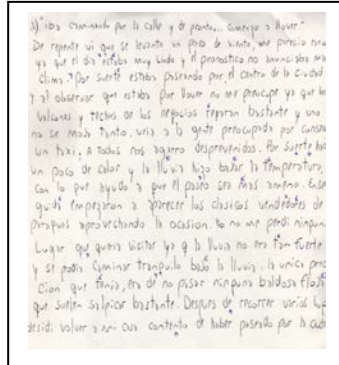 3) "iba caminando por la calle y de pronto... comenzo a llover"
De repente vi que se levanto un poco de viento, me parecio raro
ya que el dia estaba muy lindo y el pronostico no anunciaba mal
clima. Por suerte estaba paseando por el centro de la ciudad
y al observar que estaba por llover no me preocupe ya que los
balcones y techos de los negocios tapaban bastante y uno
no se moja tanto. veia a la gente preocupada por conse
un taxi. A todos nos agarro desprevenidos. Por suerte hac
un poco de calor y la lluvia hizo bajar la temperatura,
con lo que ayudo a que el paseo sea mas ameno. Ense
guida empezaron a aparecer los clasicos vendedores de
paraguas aprovechando la ocasion. Yo no me perdi ningun
Lugar que queria visitar ya q la lluvia no era tan fuerte
y se podia caminar tranquilo bajo la lluvia. la unica prec
cion que tenia, era de no pisar ninguna baldosa floja
que suelen salpicar bastante. Despues de recorrer varios lug
desidi volver a mi casa contento de haber paseado por la ciuda